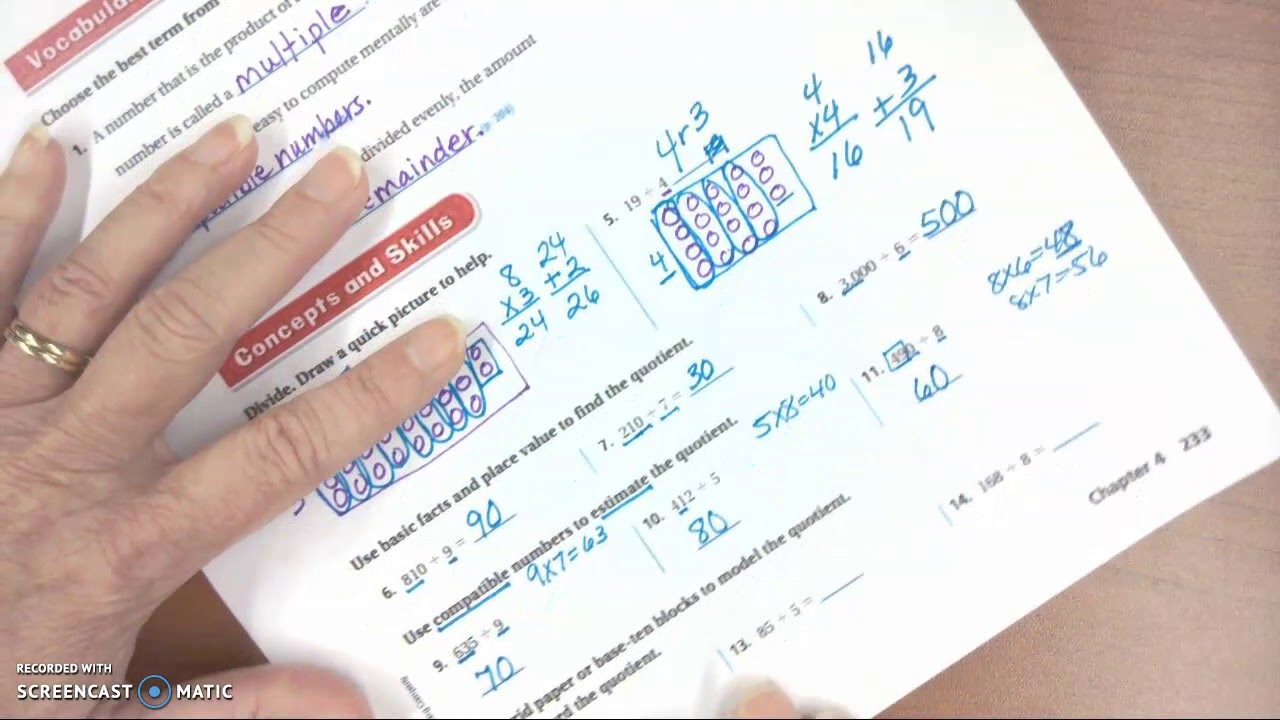 Vocabula
Choose the best term from
1. A number that is the product of
number is called a multiple.
easy to compute mentally are
numbers.
divided evenly, the amount
remainder.
Concepts and Skills
Divide. Draw a quick picture to help.
8 x3 24
24 +2 26
5. 19 ÷ 4 4r3
4
4 x4 16
16 +3 19
Use basic facts and place value to find the quotient.
6. 810 ÷ 9 = 90
7. 210 ÷ 7 = 30
8. 3,000 ÷ 6 = 500
Use compatible numbers to estimate the quotient.
9. 635 ÷ 9
70
9x7=63
10. 412 ÷ 5
80
5x8=40
11. 490 ÷ 8
60
8x6=48
8x7=56
id paper or base-ten blocks to model the quotient.
rd the quotient.
13. 85 ÷ 5 =
14. 168 ÷ 8 =
Chapter 4 233
RECORDED WITH
SCREENCAST MATIC